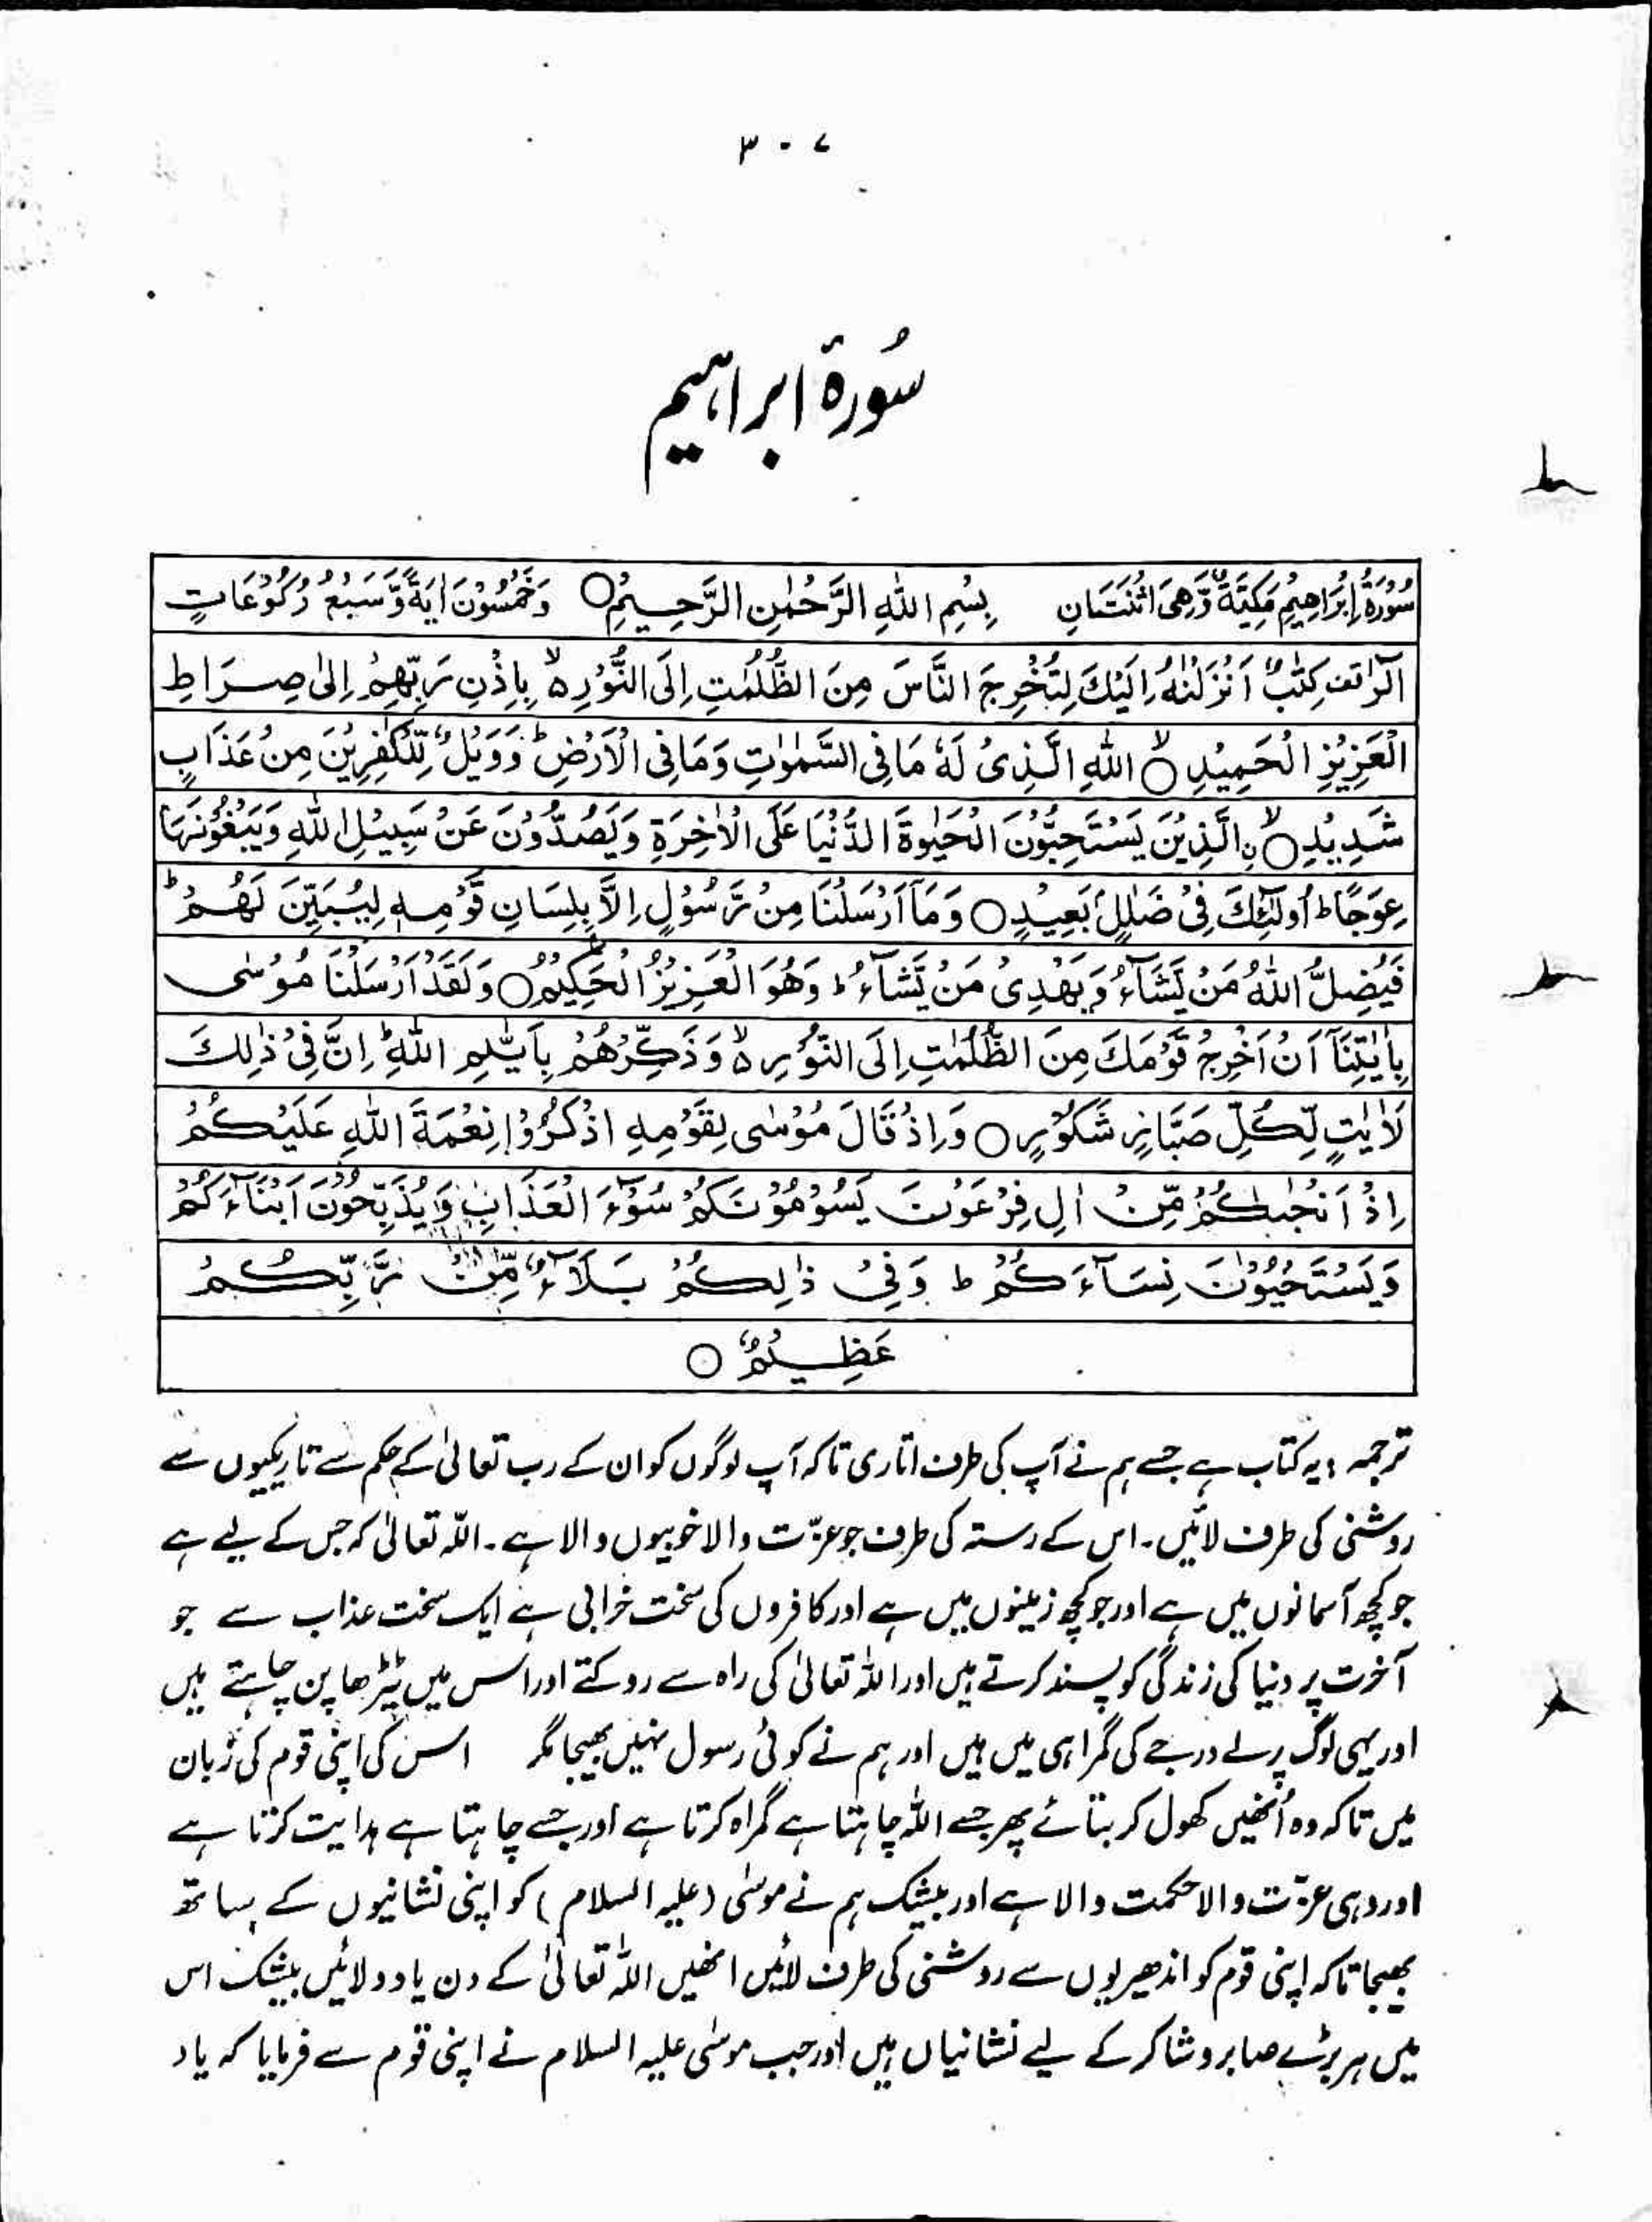 ۳۰۷
سُورۂ ابراہیم
سُوْرَةُ اِبْرَاهِيْمَ مَكِيَّةٌ وَّهِىَ اثْنَتَانِ بِسْمِ اللهِ الرَّحْمٰنِ الرَّحِيْمِ○ وَخَمْسُوْنَ اٰيَةً وَّسَبْعُ رُكُوْعَاتٍ
الٓرٰ قف كِتٰبٌ اَنْزَلْنٰهُ اِلَيْكَ لِتُخْرِجَ النَّاسَ مِنَ الظُّلُمٰتِ اِلَى النُّوْرِ ەۙ بِاِذْنِ رَبِّهِمْ اِلٰى صِرَاطِ
الْعَزِيْزِ الْحَمِيْدِ○ۙ اللهِ الَّذِىْ لَهٗ مَا فِى السَّمٰوٰتِ وَمَا فِى الْاَرْضِ ؕ وَوَيْلٌ لِّلْكٰفِرِيْنَ مِنْ عَذَابٍ
شَدِيْدِ○ۙ نِ الَّذِيْنَ يَسْتَحِبُّوْنَ الْحَيٰوةَ الدُّنْيَا عَلَى الْاٰخِرَةِ وَيَصُدُّوْنَ عَنْ سَبِيْلِ اللهِ وَيَبْغُوْنَهَا
عِوَجًا ؕ اُولٰٓئِكَ فِىْ ضَلٰلٍۢ بَعِيْدٍ○ وَمَآ اَرْسَلْنَا مِنْ رَّسُوْلٍ اِلَّا بِلِسَانِ قَوْمِهٖ لِيُبَيِّنَ لَهُمْ ؕ
فَيُضِلُّ اللهُ مَنْ يَّشَآءُ وَيَهْدِىْ مَنْ يَّشَآءُ ؕ وَهُوَ الْعَزِيْزُ الْحَكِيْمُ○ وَلَقَدْ اَرْسَلْنَا مُوْسٰى
بِاٰيٰتِنَآ اَنْ اَخْرِجْ قَوْمَكَ مِنَ الظُّلُمٰتِ اِلَى النُّوْرِ ەۙ وَذَكِّرْهُمْ بِاَيّٰىمِ اللهِ ؕ اِنَّ فِىْ ذٰلِكَ
لَاٰيٰتٍ لِّكُلِّ صَبَّارٍ شَكُوْرٍ○ وَاِذْ قَالَ مُوْسٰى لِقَوْمِهِ اذْكُرُوْا نِعْمَةَ اللهِ عَلَيْكُمْ
اِذْ اَنْجٰىكُمْ مِّنْ اٰلِ فِرْعَوْنَ يَسُوْمُوْنَكُمْ سُوْٓءَ الْعَذَابِ وَيُذَبِّحُوْنَ اَبْنَآءَكُمْ
وَيَسْتَحْيُوْنَ نِسَآءَكُمْ ؕ وَفِىْ ذٰلِكُمْ بَلَآءٌ مِّنْ رَّبِّكُمْ
عَظِيْمٌ○
ترجمہ : یہ کتاب ہے جسے ہم نے آپ کی طرف اتاری تاکہ آپ لوگوں کو ان کے رب تعالیٰ کے حکم سے تاریکیوں سے
روشنی کی طرف لائیں۔ اس کے رستہ کی طرف جو عزّت والا خوبیوں والا ہے۔ اللہ تعالیٰ کہ جس کے لیے ہے
جو کچھ آسمانوں میں ہے اور جو کچھ زمینوں میں ہے اور کافروں کی سخت خرابی ہے ایک سخت عذاب سے جو
آخرت پر دنیا کی زندگی کو پسند کرتے ہیں اور اللہ تعالیٰ کی راہ سے روکتے اور اس میں ٹیڑھا پن چاہتے ہیں
اور یہی لوگ پرلے درجے کی گمراہی میں ہیں اور ہم نے کوئی رسول نہیں بھیجا مگر اس کی اپنی قوم کی زبان
میں تاکہ وہ اُنھیں کھول کر بتائے پھر جسے اللہ چاہتا ہے گمراہ کرتا ہے اور جسے چاہتا ہے ہدایت کرتا ہے
اور وہی عزّت والا حکمت والا ہے اور بیشک ہم نے موسٰی (علیہ السلام) کو اپنی نشانیوں کے ساتھ
بھیجا تاکہ اپنی قوم کو اندھیریوں سے روشنی کی طرف لائیں انھیں اللہ تعالیٰ کے دن یاد دلائیں بیشک اس
میں ہر بڑے صابر و شاکر کے لیے نشانیاں ہیں اور جب موسٰی علیہ السلام نے اپنی قوم سے فرمایا کہ یاد